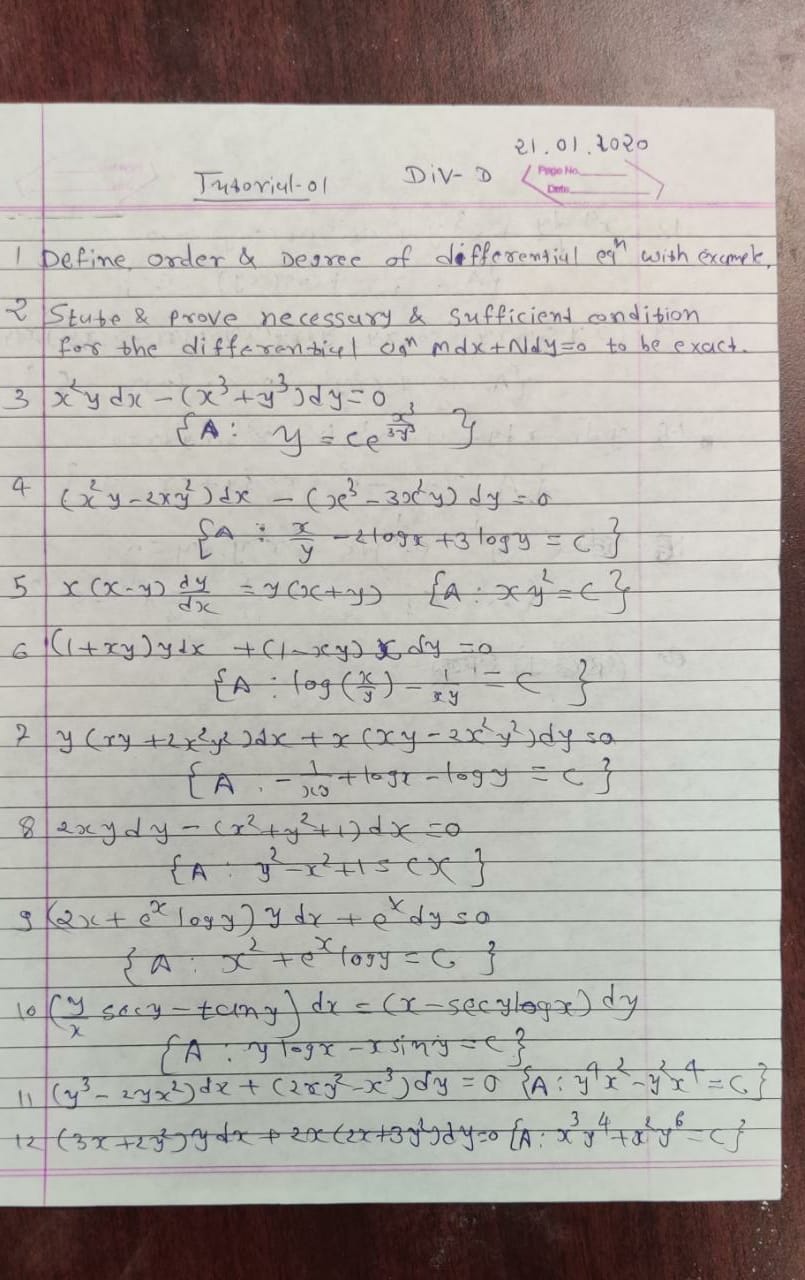 21.01.2020
Tutorial-01 DiV-D Page No.
Date
1 Define order & Degree of differential eqⁿ with example.
2 State & prove necessary & sufficient condition
for the differential eqⁿ Mdx+Ndy=0 to be exact.
3 x²y dx - (x³+y³)dy=0
{A: y = ce^(x³/3y³) }
4 (x²y-2xy²)dx - (x³-3x²y)dy=0
{A: x/y -2logx+3logy = C}
5 x(x-y) dy/dx = y(x+y) {A: xy²=C}
6 (1+xy)ydx +(1-xy)x dy=0
{A: log(x/y) - 1/xy = C }
7 y(xy+2x²y²)dx + x(xy-2x²y²)dy=0
{A. -1/xy + logx - logy = C}
8 2xydy - (x²+y²+1)dx=0
{A: y²-x²+1=CX}
9 (2x+e^x logy)y dx + e^x dy=0
{A: x²+e^x logy=C }
10 (y/x secy - tany) dx = (x-secylogx) dy
{A: y logx - x siny=C}
11 (y³-2yx²)dx + (2xy²-x³)dy = 0 {A: y⁴x²-y²x⁴=C}
12 (3x+2y²)ydx + 2x(2x+3y²)dy=0 {A: x³y⁴+x²y⁶=C}